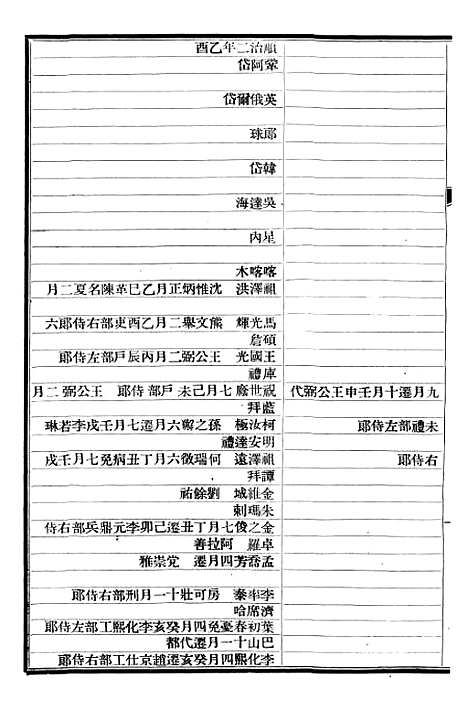 順治二年乙酉
鞏阿岱
英俄爾岱
郎球
韓岱
吳達海
星內
喀喀木
祖澤洪 沈惟炳正月乙巳革陳名夏二月
馬光輝 熊文舉二月乙酉吏部右侍郎六
碩詹
王國光 王公弼二月丙辰戶部左侍郎
庫禮
九月遷十月壬申王公弼代
祝世廕七月己未戶部侍郎 王公弼二月
藍拜
未禮部左侍郎
柯汝極 孫之獬六月遷七月壬戌李若琳
明安達禮
右侍郎
祖澤遠 何瑞徵六月丁丑病免七月壬戌
譚拜
金維城 劉餘祐
朱瑪剌
金之俊七月丁丑遷己卯李元鼎兵部右侍
卓羅 阿拉善
孟喬芳四月遷 党崇雅
李率泰 房可壯十一月刑部右侍郎
濟席哈
葉初春憂免四月癸亥李化熙工部左侍郎
巴山十一月遷代都
李化熙四月癸亥遷趙京仕工部右侍郎